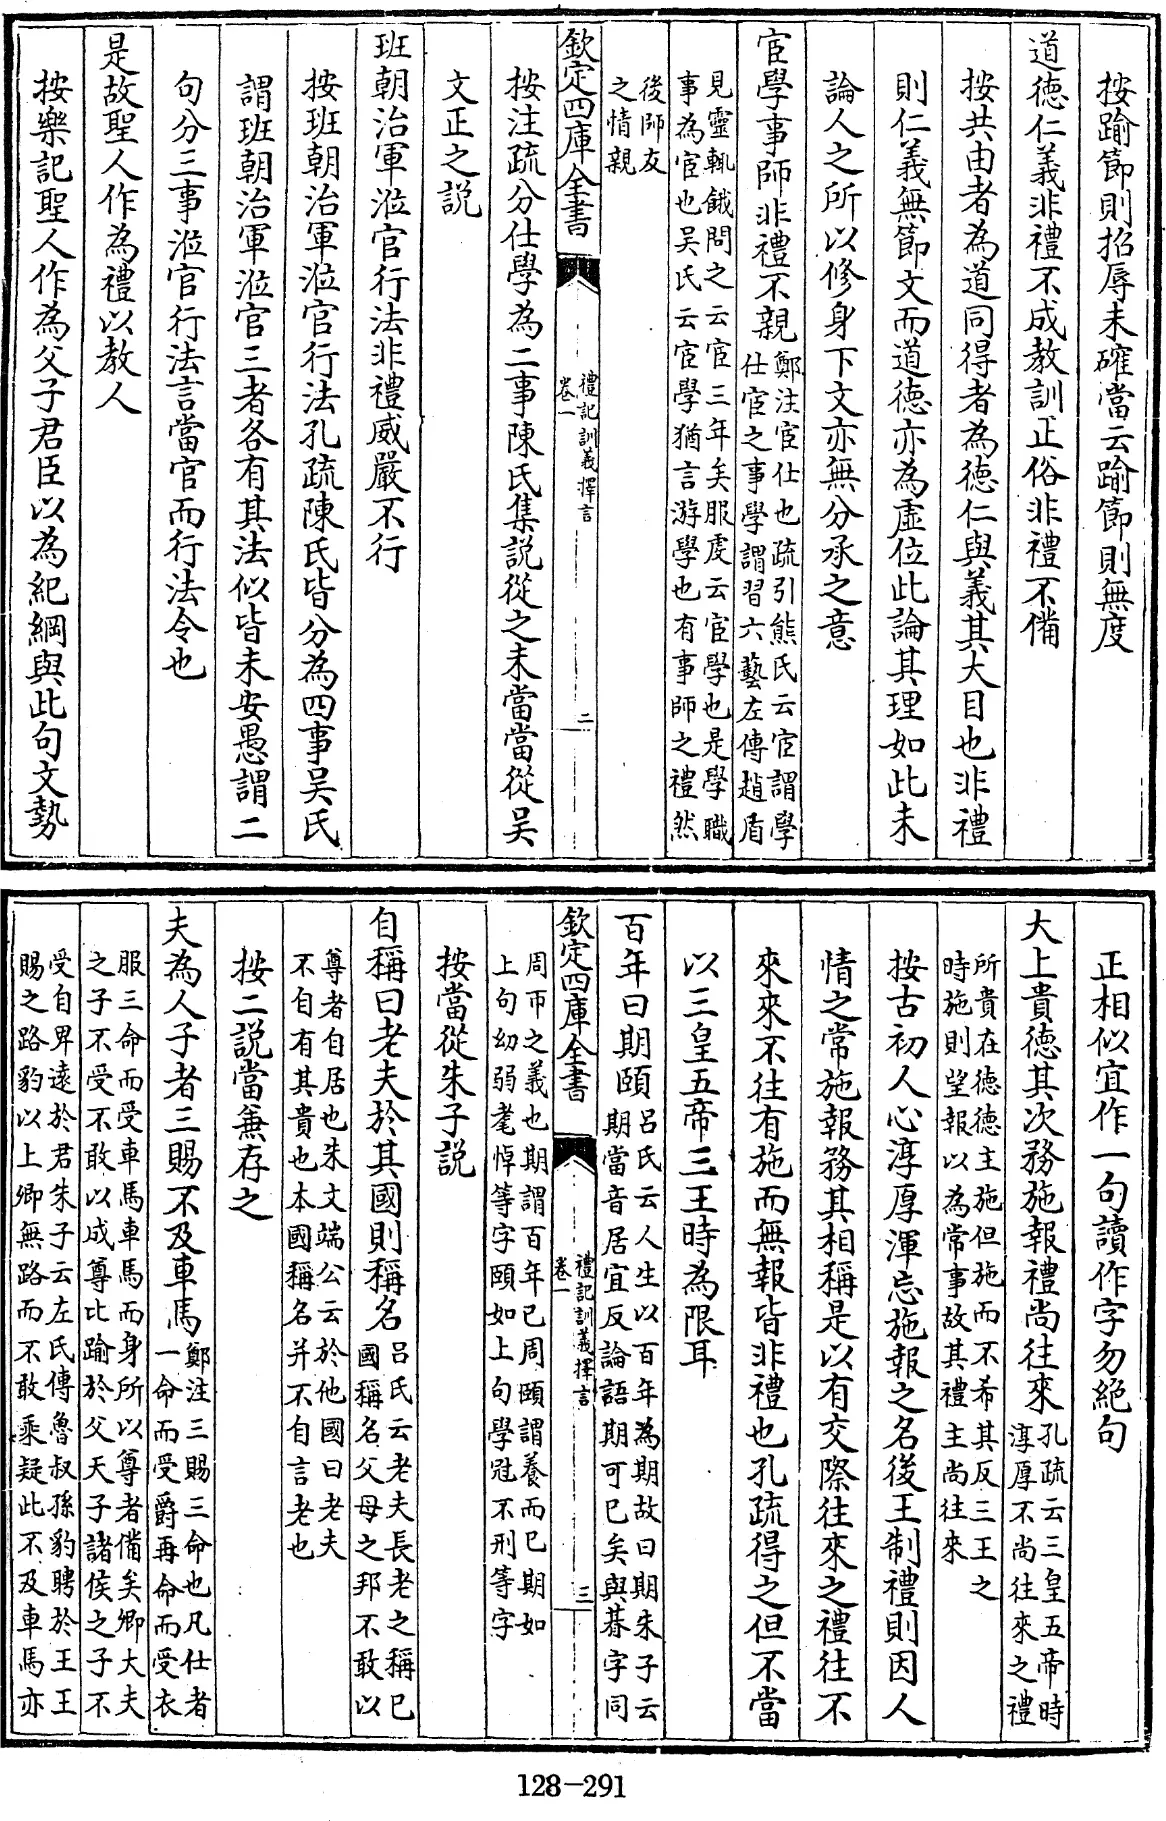 按踰節則招辱未確當云踰節則無度
道徳仁義非禮不成教訓正俗非禮不備
按共由者為道同得者為徳仁與義其大目也非禮
則仁義無節文而道徳亦為虛位此論其理如此未
論人之所以修身下文亦無分承之意
宦學事師非禮不親
鄭注宦仕也疏引熊氏云宦謂學
仕宦之事學謂習六藝左傳趙盾
見靈輒餓問之云宦三年矣服虔云宦學也是學職
事為宦也吳氏云宦學猶言游學也有事師之禮然
後師友
之情親
欽定四庫全書
禮記訓義擇言
卷一
二
按注疏分仕學為二事陳氏集説從之未當當從吳
文正之説
班朝治軍涖官行法非禮威嚴不行
按班朝治軍涖官行法孔疏陳氏皆分為四事吳氏
謂班朝治軍涖官三者各有其法似皆未安愚謂二
句分三事涖官行法言當官而行法令也
是故聖人作為禮以教人
按樂記聖人作為父子君臣以為紀綱與此句文勢
正相似宜作一句讀作字勿絶句
大上貴徳其次務施報禮尚往來
孔疏云三皇五帝時
淳厚不尚往來之禮
所貴在徳徳主施但施而不希其反三王之
時施則望報以為常事故其禮主尚往來
按古初人心淳厚渾忘施報之名後王制禮則因人
情之常施報務其相稱是以有交際往來之禮往不
來來不往有施而無報皆非禮也孔疏得之但不當
以三皇五帝三王時為限耳
百年曰期頤
吕氏云人生以百年為期故曰期朱子云
期當音居宜反論語期可已矣與朞字同
欽定四庫全書
禮記訓義擇言
卷一
三
周帀之義也期謂百年已周頤謂養而已期如
上句幼弱耄悼等字頤如上句學冠不刑等字
按當從朱子説
自稱曰老夫於其國則稱名
吕氏云老夫長老之稱已
國稱名父母之邦不敢以
尊者自居也朱文端公云於他國曰老夫
不自有其貴也本國稱名并不自言老也
按二説當兼存之
夫為人子者三賜不及車馬
鄭注三賜三命也凡仕者
一命而受爵再命而受衣
服三命而受車馬車馬而身所以尊者備矣卿大夫
之子不受不敢以成尊比踰於父天子諸侯之子不
受自卑遠於君朱子云左氏傳魯叔孫豹聘於王王
賜之路豹以上卿無路而不敢乘疑此不及車馬亦
128-291